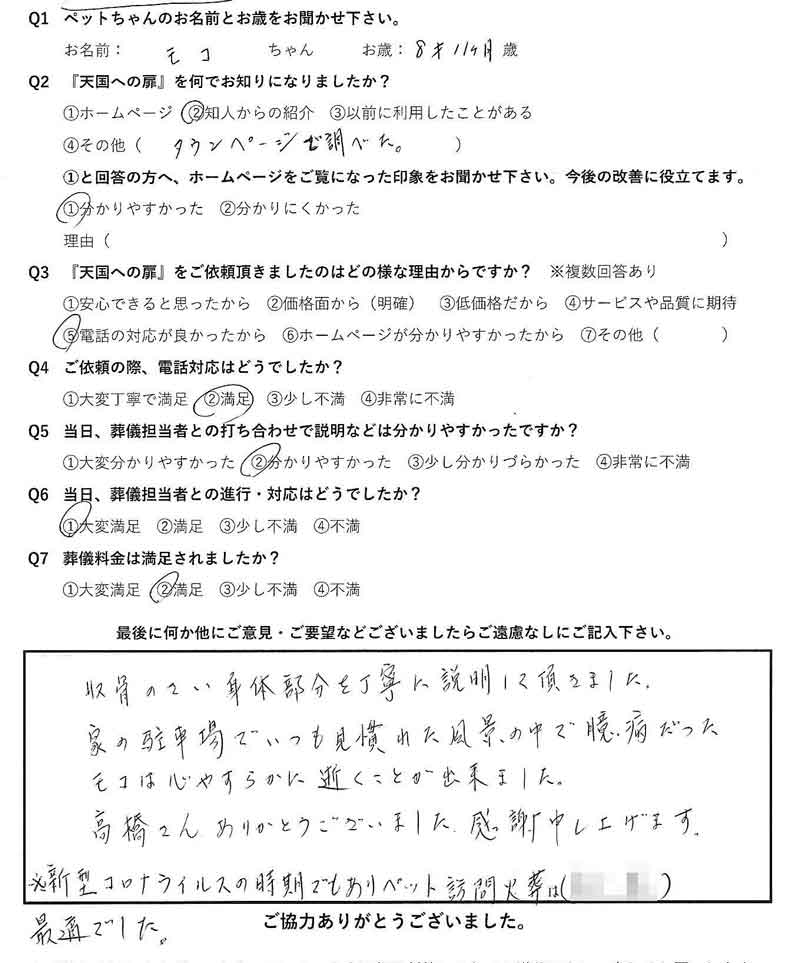 Q1 ペットちゃんのお名前とお歳をお聞かせ下さい。
お名前： モコ ちゃん お歳：8才11ヶ月歳
Q2 『天国への扉』を何でお知りになりましたか？
①ホームページ ②知人からの紹介 ③以前に利用したことがある
④その他（ タウンページで調べた。 ）
①と回答の方へ、ホームページをご覧になった印象をお聞かせ下さい。今後の改善に役立てます。
①分かりやすかった ②分かりにくかった
理由（ ）
Q3 『天国への扉』をご依頼頂きましたのはどの様な理由からですか？ ※複数回答あり
①安心できると思ったから ②価格面から（明確） ③低価格だから ④サービスや品質に期待
⑤電話の対応が良かったから ⑥ホームページが分かりやすかったから ⑦その他（ ）
Q4 ご依頼の際、電話対応はどうでしたか？
①大変丁寧で満足 ②満足 ③少し不満 ④非常に不満
Q5 当日、葬儀担当者との打ち合わせで説明などは分かりやすかったですか？
①大変分かりやすかった ②分かりやすかった ③少し分かりづらかった ④非常に不満
Q6 当日、葬儀担当者との進行・対応はどうでしたか？
①大変満足 ②満足 ③少し不満 ④不満
Q7 葬儀料金は満足されましたか？
①大変満足 ②満足 ③少し不満 ④不満
最後に何か他にご意見・ご要望などございましたらご遠慮なしにご記入下さい。
収骨のさい身体部分を丁寧に説明して頂きました。
家の駐車場でいつも見慣れた風景の中で臆病だった
モコは心やすらかに逝くことが出来ました。
高橋さんありがとうございました。感謝申し上げます。
※新型コロナライルスの時期でもありペット訪問火葬は( )
最適でした。
ご協力ありがとうございました。